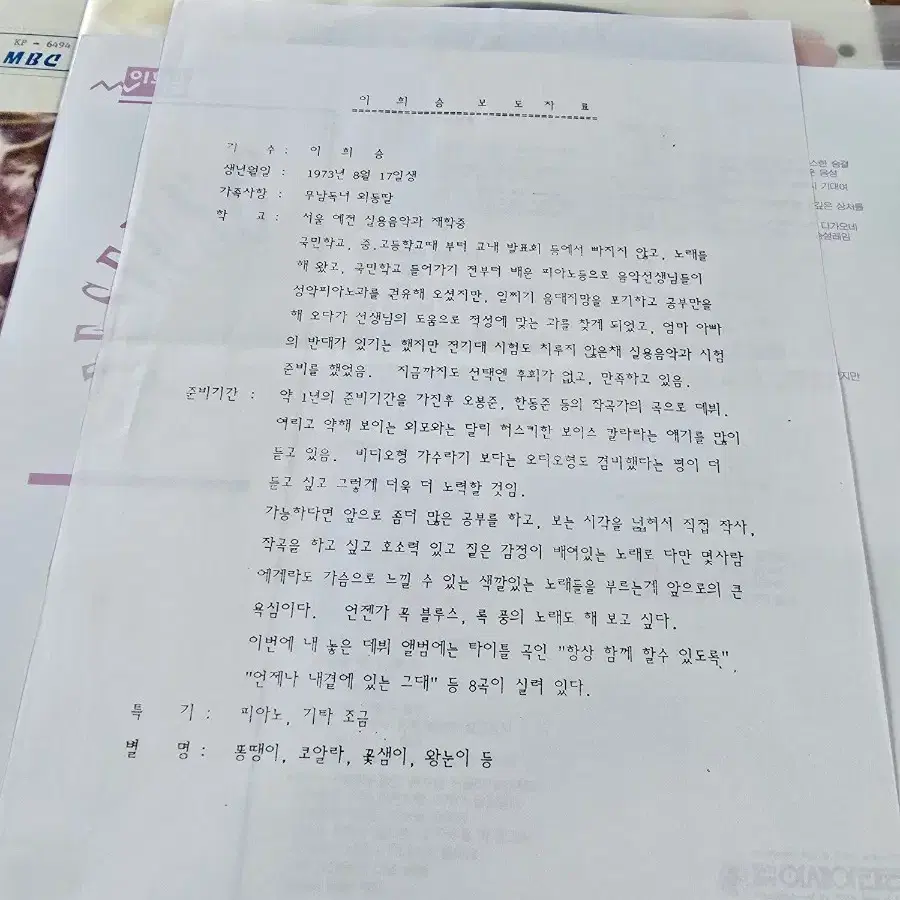 KP - 6494
MBC
이 희 승 보 도 자 료
가 수 : 이 희 승
생년월일 : 1973년 8월 17일생
가족사항 : 무남독녀 외동딸
학 교 : 서울 예전 실용음악과 재학중
국민학교, 중.고등학교때 부터 교내 발표회 등에서 빠지지 않고, 노래를
해 왔고, 국민학교 들어가기 전부터 배운 피아노등으로 음악선생님들이
성악피아노과를 권유해 오셨지만, 일찌기 음대지망을 포기하고 공부만을
해 오다가 선생님의 도움으로 적성에 맞는 과를 찾게 되었고, 엄마 아빠
의 반대가 있기는 했지만 전기대 시험도 치루지 않은채 실용음악과 시험
준비를 했었음. 지금까지도 선택엔 후회가 없고, 만족하고 있음.
준비기간 : 약 1년의 준비기간을 가진후 오봉준, 한동준 등의 작곡가의 곡으로 데뷔.
여리고 약해 보이는 외모와는 달리 허스키한 보이스 칼라라는 얘기를 많이
듣고 있음. 비디오형 가수라기 보다는 오디오형도 겸비했다는 평이 더
듣고 싶고 그렇게 더욱 더 노력할 것임.
가능하다면 앞으로 좀더 많은 공부를 하고, 보는 시각을 넓혀서 직접 작사,
작곡을 하고 싶고 호소력 있고 짙은 감정이 배여있는 노래로 다만 몇사람
에게라도 가슴으로 느낄 수 있는 색깔있는 노래들을 부르는게 앞으로의 큰
욕심이다. 언젠가 꼭 블루스, 록 풍의 노래도 해 보고 싶다.
이번에 내 놓은 데뷔 앨범에는 타이틀 곡인 "항상 함께 할수 있도록",
"언제나 내곁에 있는 그대" 등 8곡이 실려 있다.
특 기 : 피아노, 기타 조금
별 명 : 똥땡이, 코알라, 꽃샘이, 왕눈이 등
스런 숨결
음성
기대어
깊은 상처를
다가오네
설레임
지만